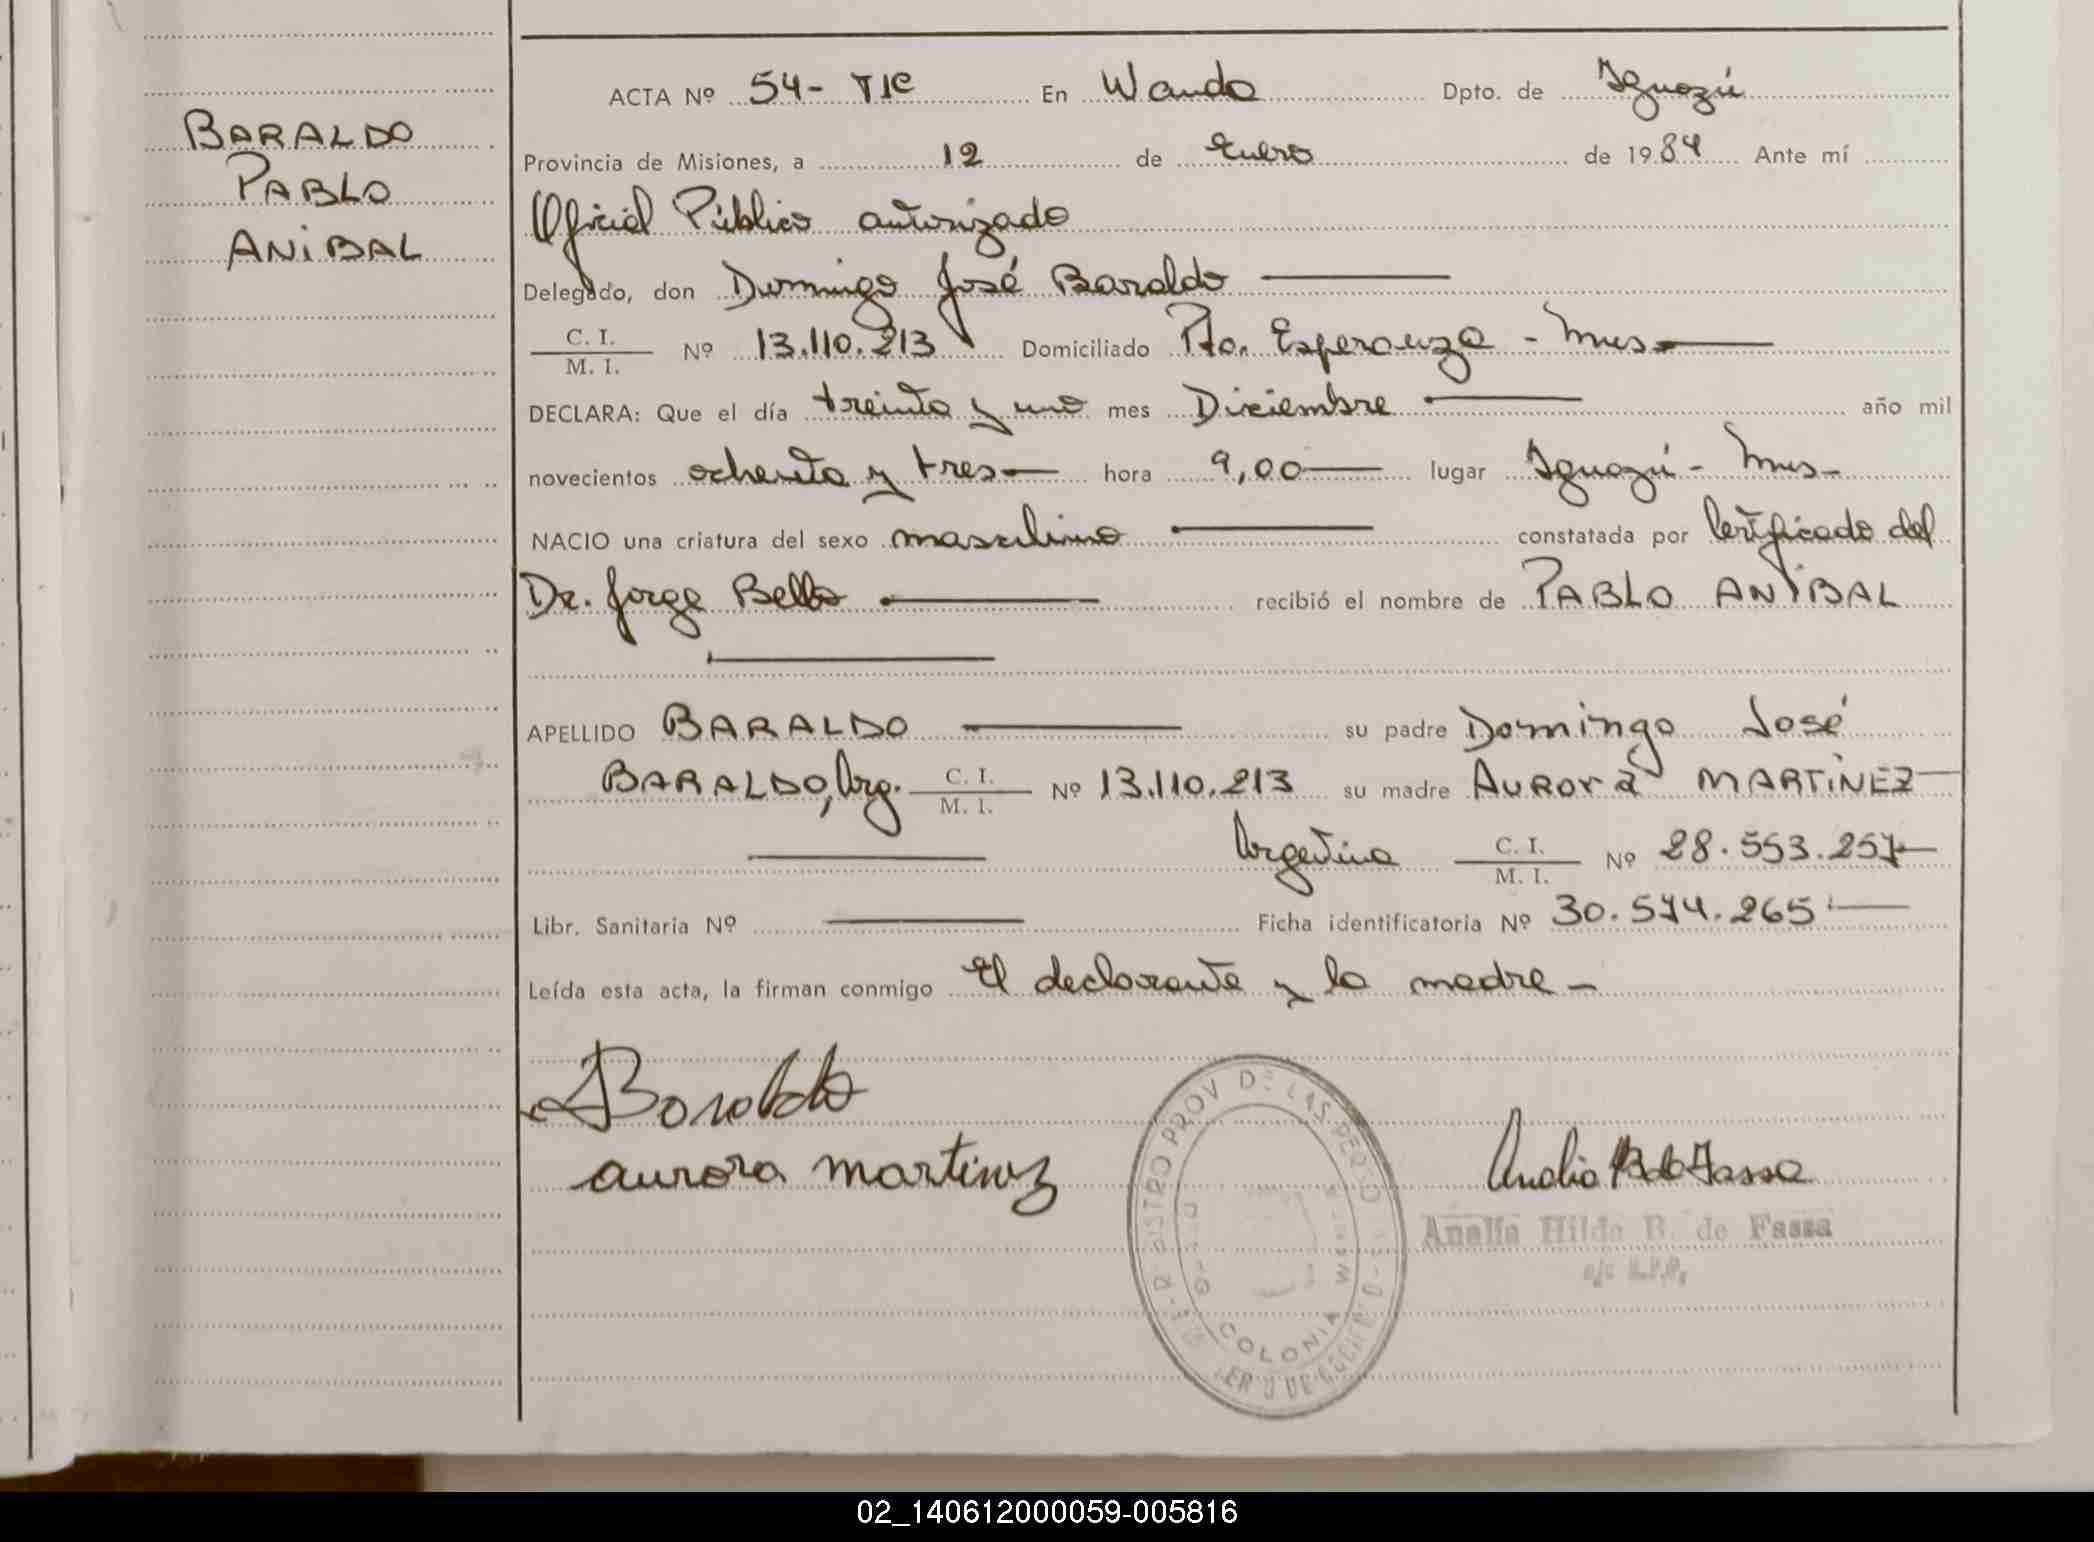 BARALDO
PABLO
ANIBAL
ACTA Nº 54- TIC En Wanda Dpto. de Iguazú
Provincia de Misiones, a 12 de Enero de 1984 Ante mí
Oficial Público autorizado
Delegado, don Domingo José Baraldo
C. I. / M. I. Nº 13.110.213 Domiciliado Pto. Esperanza - Mnes
DECLARA: Que el día treinta y uno mes Diciembre año mil
novecientos ochenta y tres hora 9,00 lugar Iguazú - Mnes-
NACIO una criatura del sexo masculino constatada por Certificado del
Dr. Jorge Bello recibió el nombre de PABLO ANIBAL
APELLIDO BARALDO su padre Domingo José
BARALDO, Arg. C. I. / M. I. Nº 13.110.213 su madre AURORA MARTINEZ
Argentina C. I. / M. I. Nº 28.553.257
Libr. Sanitaria Nº Ficha identificatoria Nº 30.574.265
Leída esta acta, la firman conmigo El declarante y la madre-
Baraldo
aurora martinez
PROV DE LAS PERS
COLONIA WANDA
Analia B de Fassa
Analia Hilda B. de Fassa
02_140612000059-005816